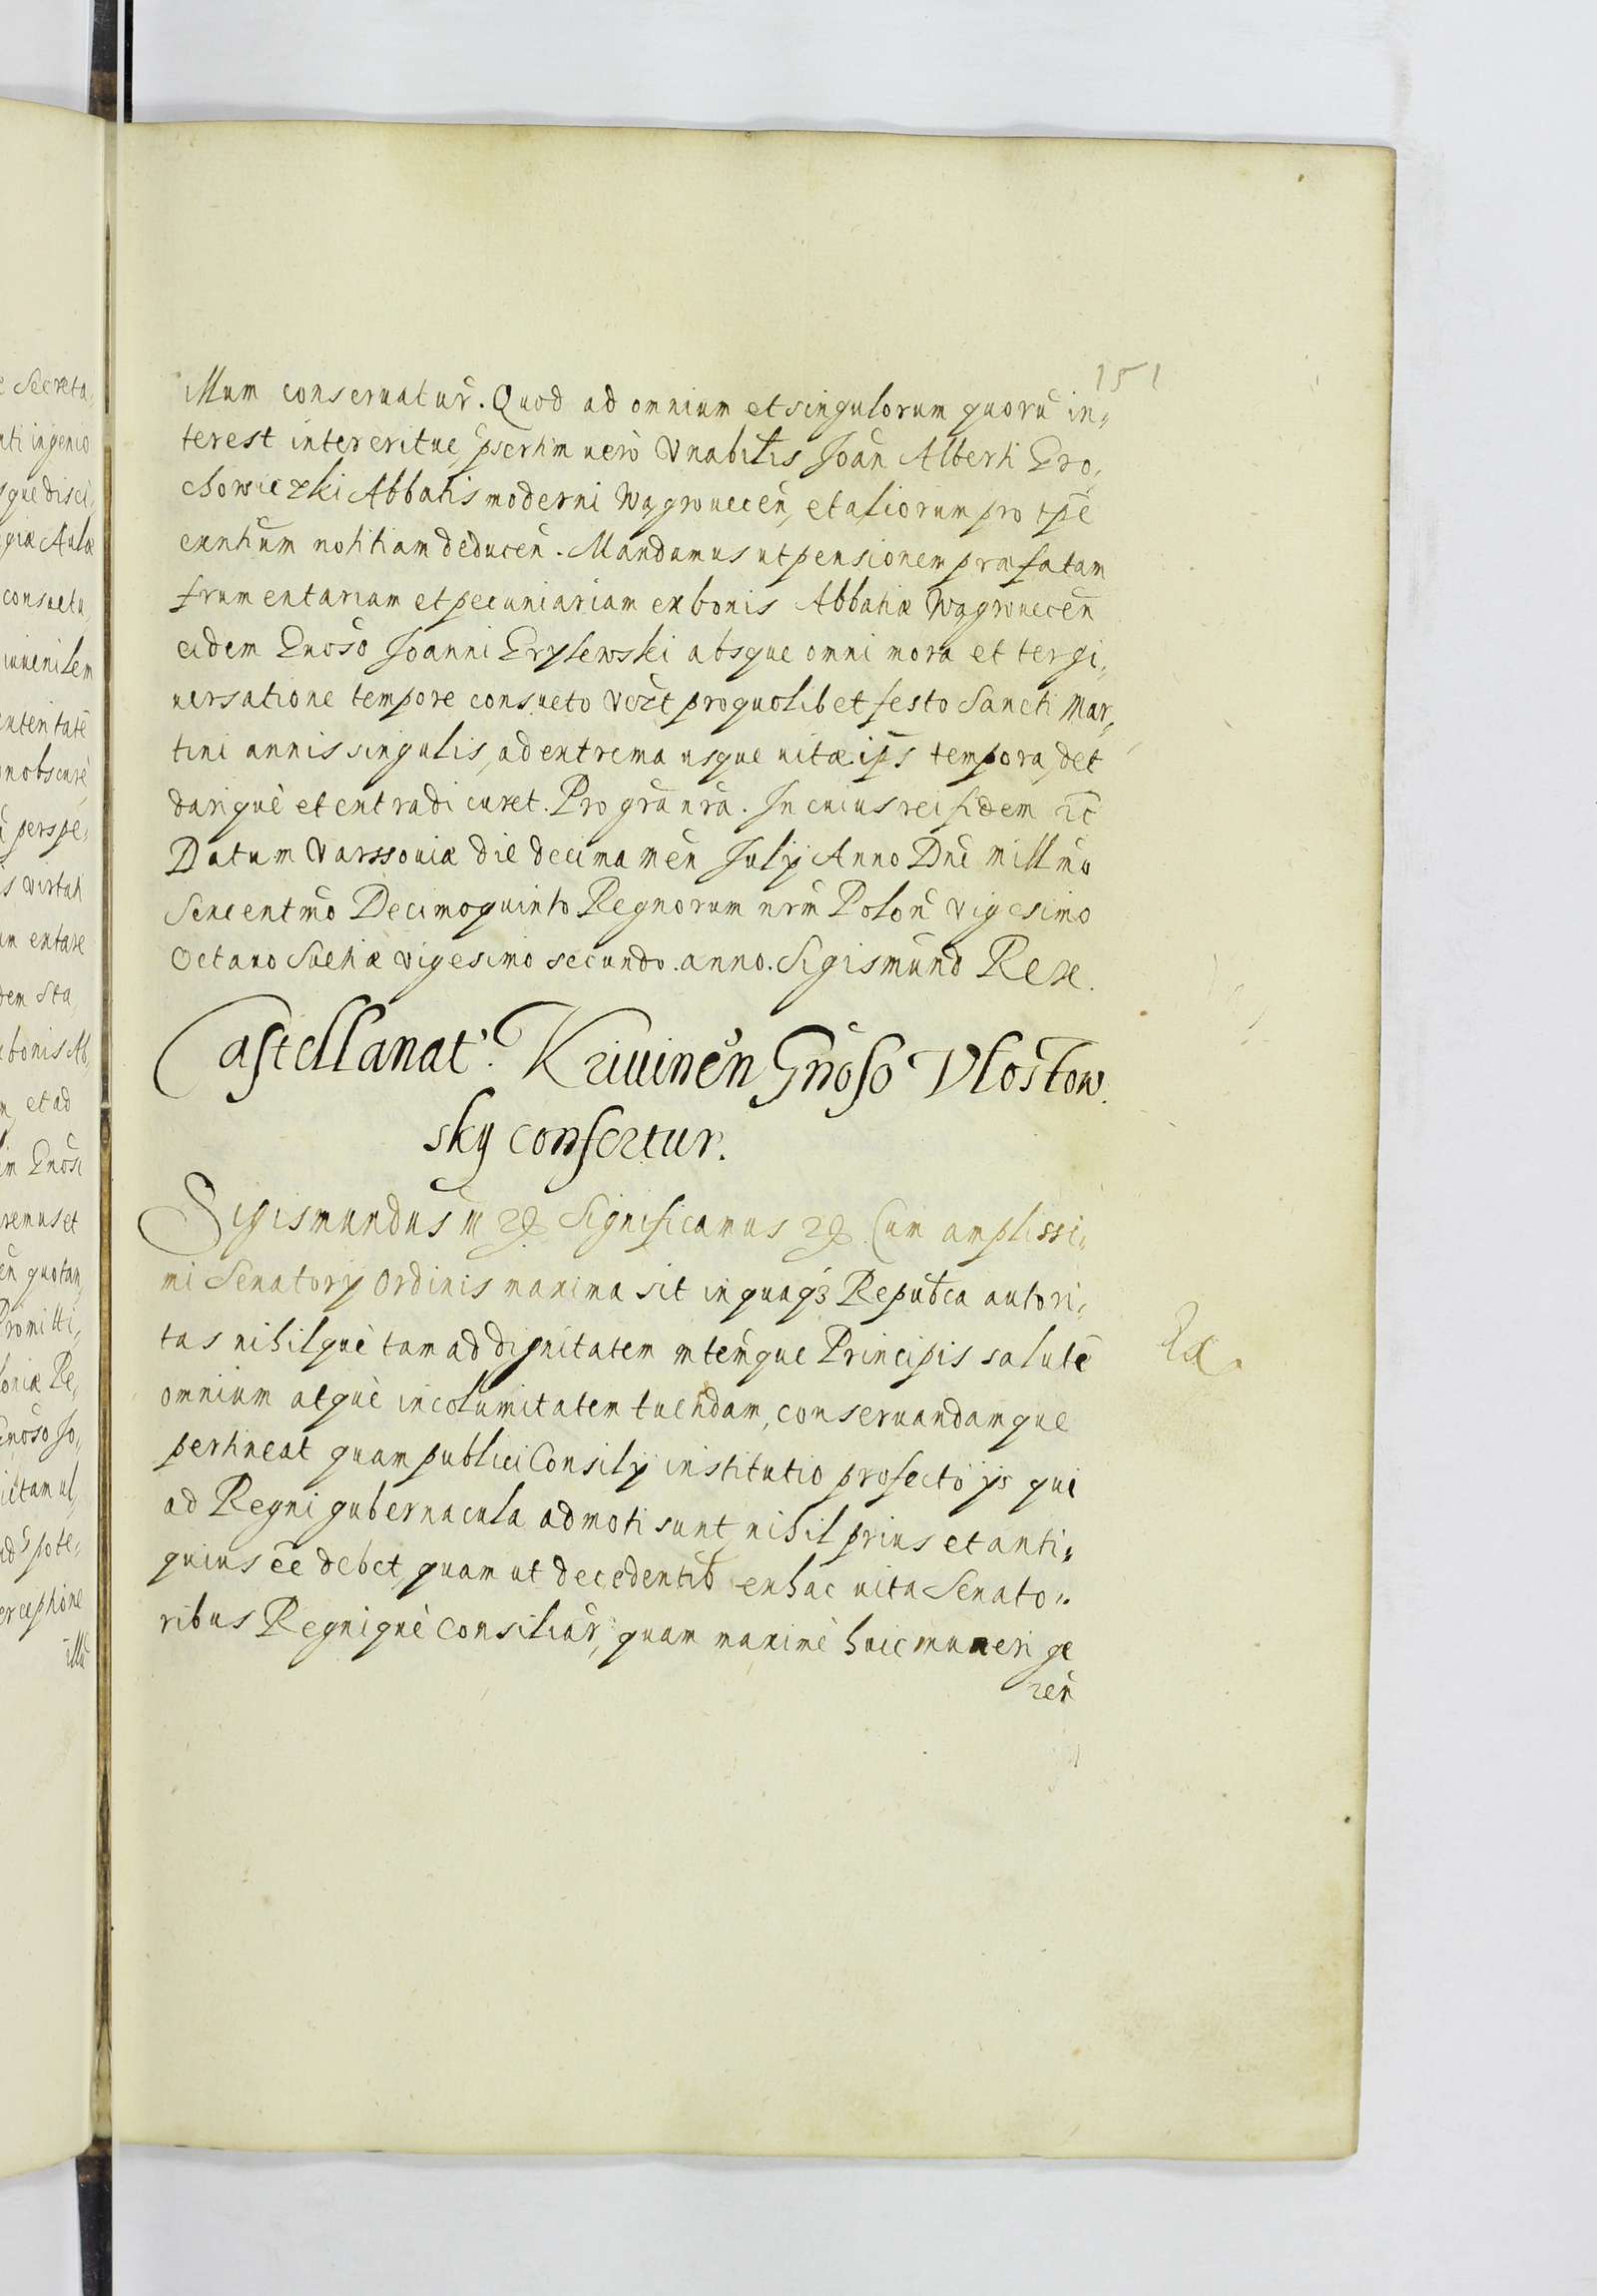 151
illum conseruatur̃. Quod ad omnium et singulorum quorũ in„
terest intereritue, p̃sertim uerò Vn̄abilis Joan̄ Alberti Gro„
chowiczki Abbatis moderni Wągrouecen̄, et aliorum pro tp̄e
exntium notitiam deducen̄. Mandamus ut pensionem præfatam
frumentariam et pecuniariam ex bonis Abbatiæ Wągrouecen̄
eidem Gnoso Joanni Grylewski absque omni mora et tergi„
uersatione tempore consueto vczt pro quolibet festo Sancti Mar„
tini annis singulis, ad extrema usque uitæ ip̄s tempora, det
dariquè et extradi curet. Pro gr̃a nr̃a. In cuius rei fidem ꝛc̄
Datum Varssouiæ die decima men̄ Julij Anno Dn̄i Mill m̄o
Sexcentm̄o Decimoquinto Regnorum nr̄m Polon̄ vigesimo
Octauo Suetiæ vigesimo secundo. anno. Sigismund̄ Rex.
Castellanat'. Kriuinen̄ Gn̄oso Vlostow„
sky confertur.
Sigismundus III ꝛꝭ Significamus ꝛꝭ. Cum amplissi„
mi Senatorij Ordinis maxima sit in quaqꝫ Repub̄ca autori„
tas nihilquè tam ad dignitatem mtemque Principis salutē
omnium atquè incolumitatem tuendam, conseruandamque
pertineat quam publici Consilij institutio profectò ijs qui
ad Regni gubernacula admoti sunt, nihil prius et anti„
quius ēe debet, quam ut decedentib ex hac uita Senato„
ribus Regniquè Consiliar̃, quam maximè huic muneri ge
ren̄